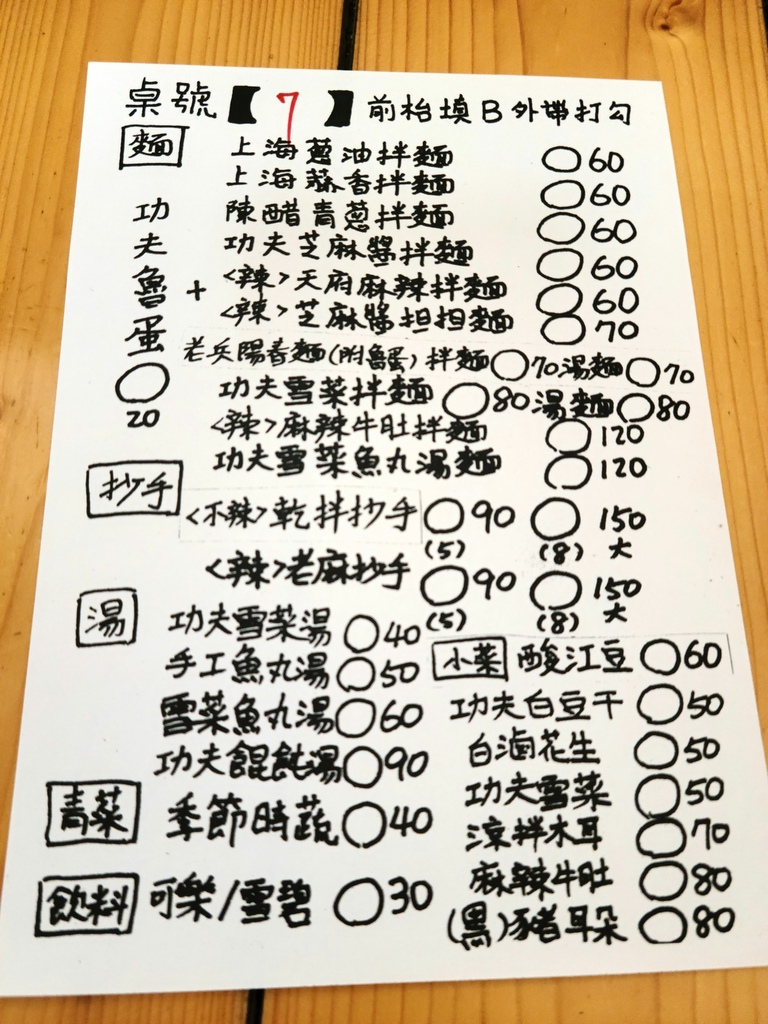 桌號【7】前枱填B外帶打勾
麵
上海蔥油拌麵 ○60
上海蒜香拌麵 ○60
陳醋青蔥拌麵 ○60
功夫芝麻醬拌麵 ○60
<辣>天府麻辣拌麵 ○60
<辣>芝麻醬担担麵 ○70
功夫魯蛋 + ○ 20
老兵陽春麵(附魯蛋)拌麵○70湯麵○70
功夫雪菜拌麵○80湯麵○80
<辣>麻辣牛肚拌麵 ○120
功夫雪菜魚丸湯麵 ○120
抄手
<不辣>乾拌抄手○90 ○150
(5) (8) 大
<辣>老麻抄手○90 ○150
(5) (8) 大
湯
功夫雪菜湯○40
手工魚丸湯○50
雪菜魚丸湯○60
功夫餛飩湯○90
青菜
季節時蔬○40
飲料
可樂/雪碧 ○30
小菜
酸江豆○60
功夫白豆干○50
白滷花生○50
功夫雪菜○50
涼拌木耳○70
麻辣牛肚○80
(黑)豬耳朵○80